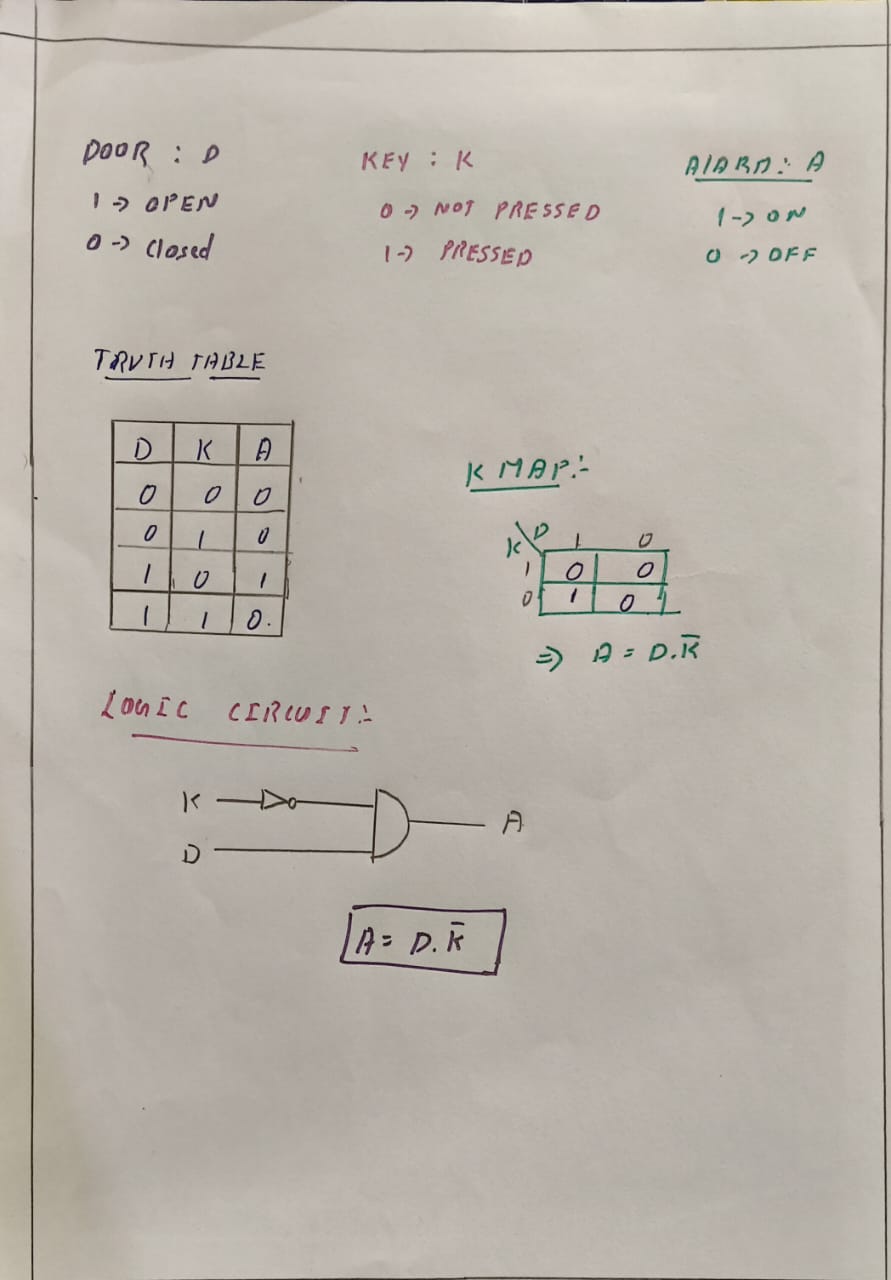 DOOR : D
1 → OPEN
0 → closed
KEY : K
0 → NOT PRESSED
1 → PRESSED
AlARM :- A
1 → ON
0 → OFF
TRUTH TABLE
D K A
0 0 0
0 1 0
1 0 1
1 1 0.
K MAP :-
K\D 1 0
1 0 0
0 1 0
⇒ A = D.K̅
LOGIC CIRCUIT :-
K
D
A
A = D.K̅